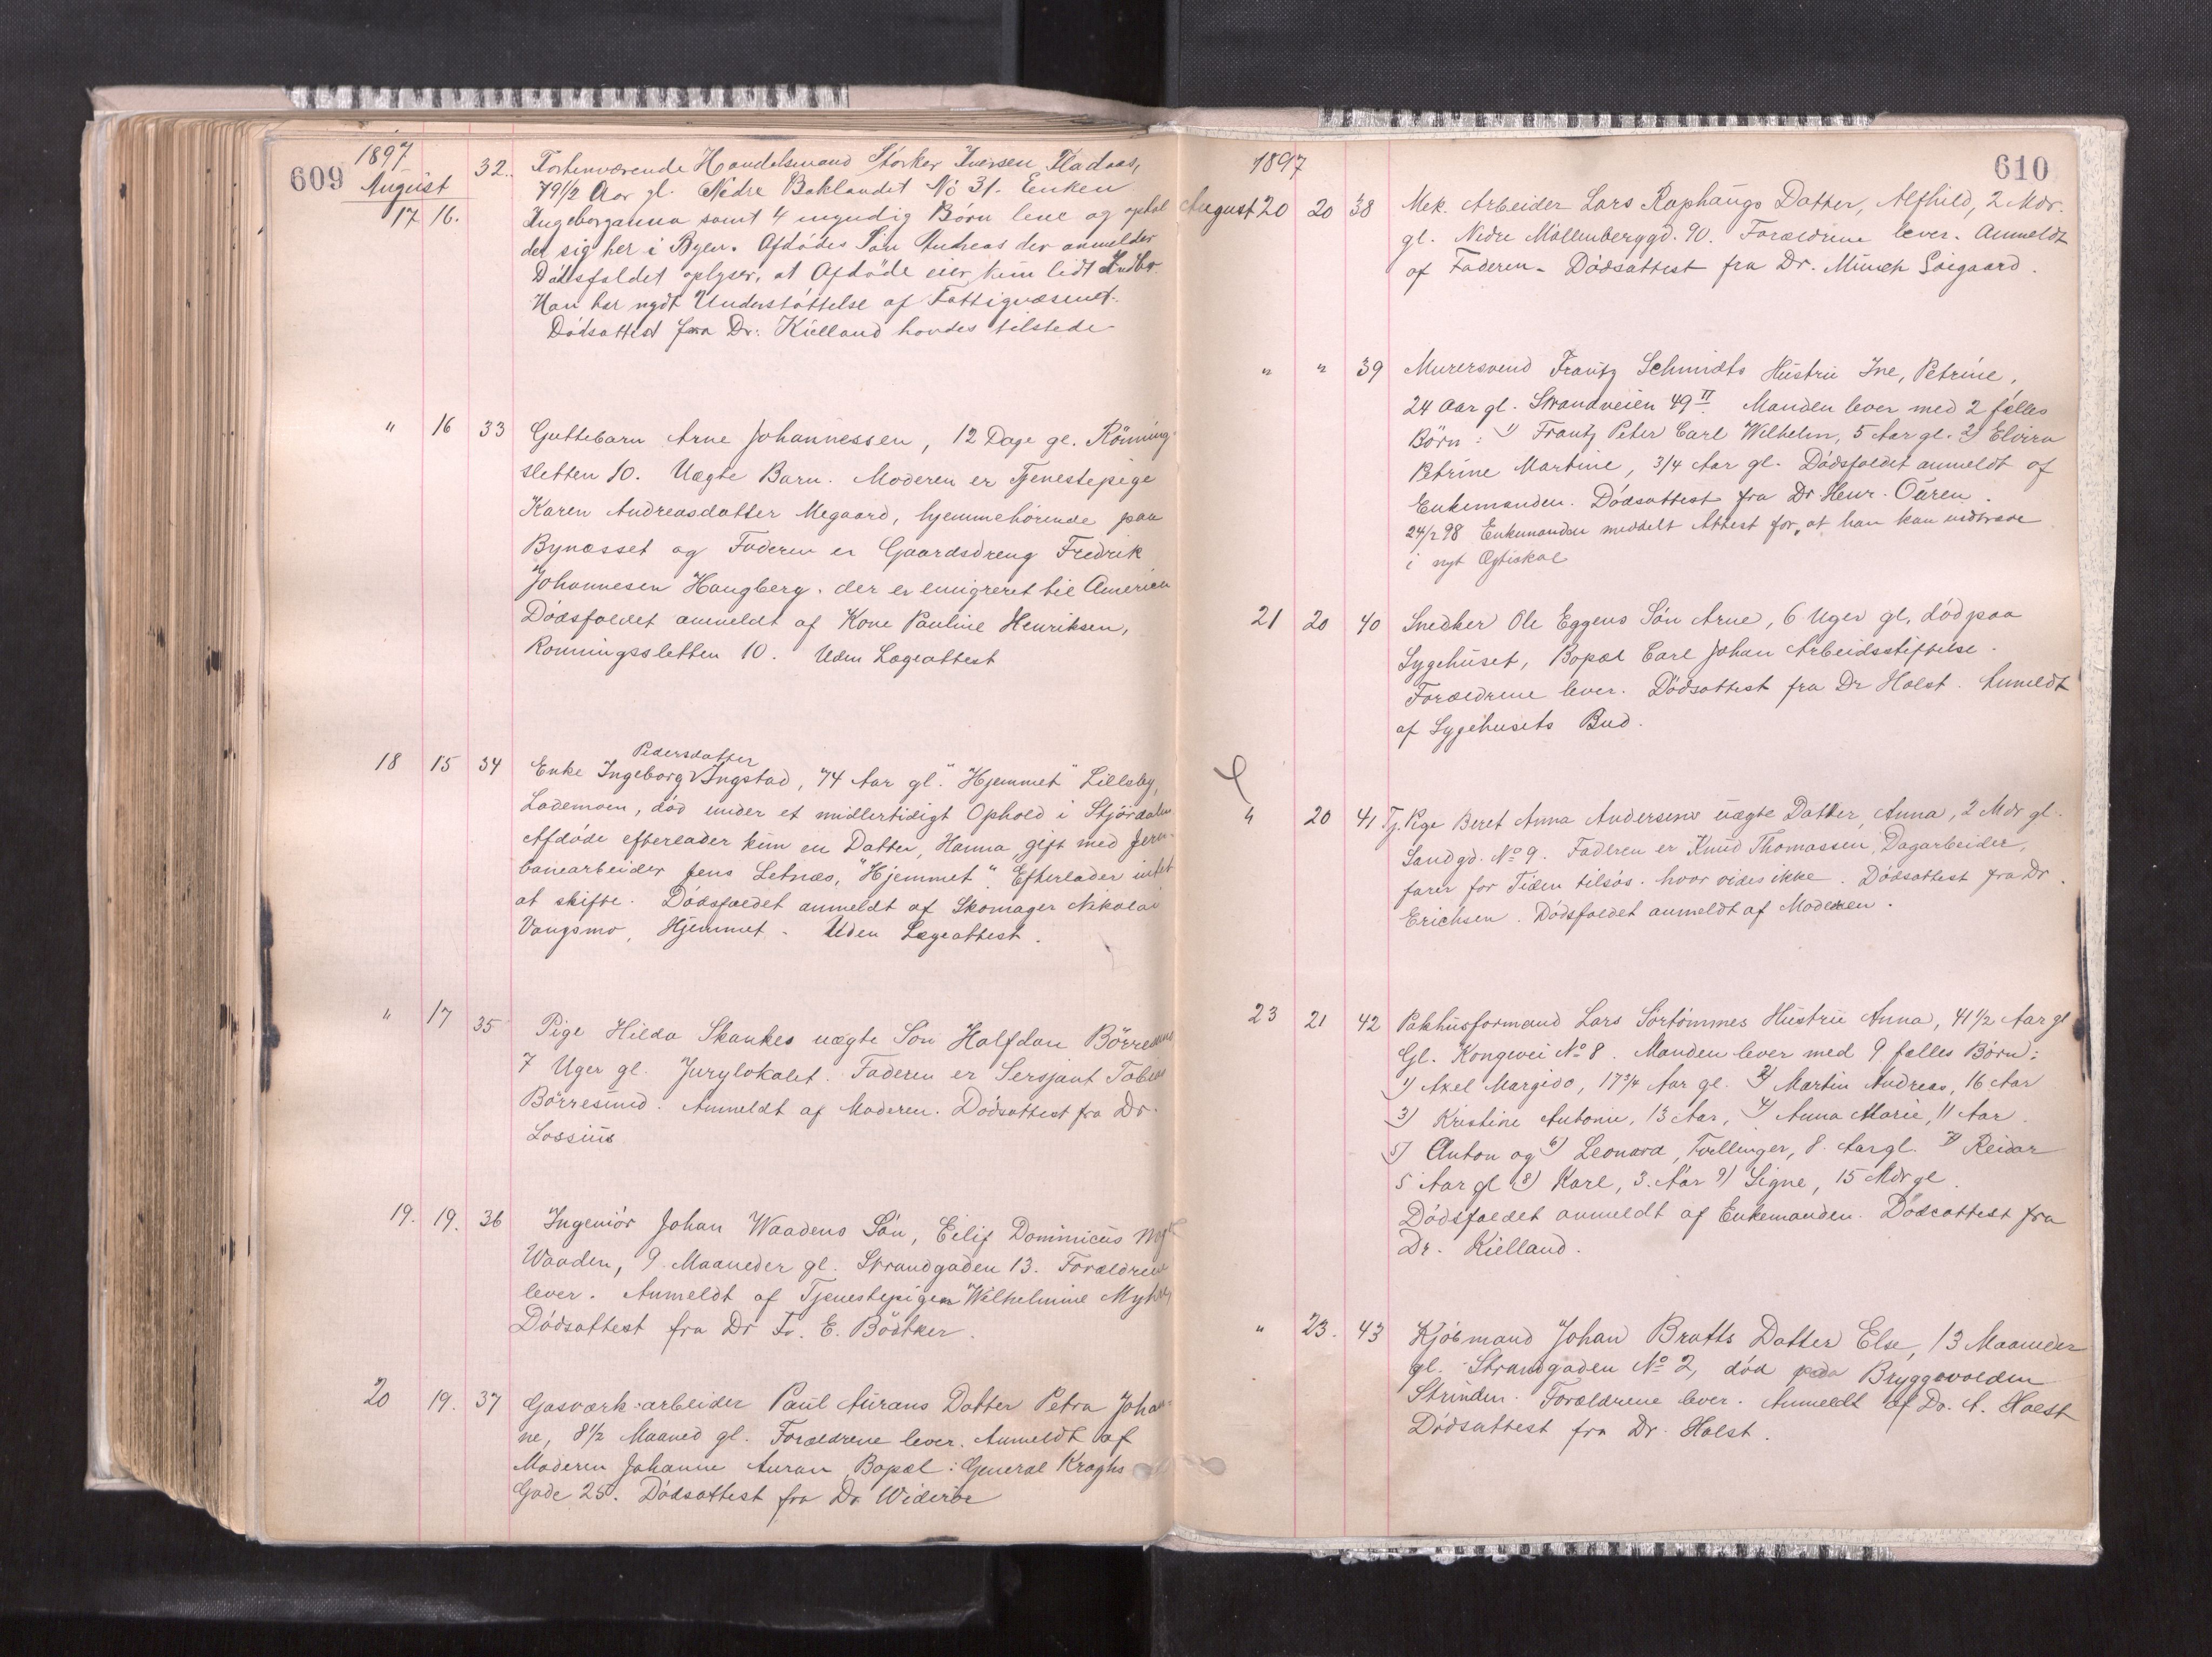 609
1897
August
17 16. 32. Forhenværende Handelsmand Störker Iversen Fladaas,
79 1/2 Aar gl. Nedre Baklandet No 31. Enken
Ingeborganna samt 4 myndig Börn leve og ophol
der sig her i Byen. Afdödes Sön Andreas der anmelder
Dödsfaldet oplyser, at Afdöde eier kun lidt Indbo.
Han har nydt Understöttelse af Fattigvæsenet.
Dödsattest fra Dr. Kielland havdes tilstede
" 16 33 Guttebarn Arne Johannessen, 12 Dage gl. Rönning
sletten 10. Uægte Barn. Moderen er Tjenestepige
Karen Andreasdatter Megaard, hjemmehörende paa
Bynæsset og Faderen er Gaardsdreng Fredrik
Johannesen Haugberg. der er emigreret til Amerika
Dödsfaldet anmeldt af Kone Pauline Henriksen,
Ronningssletten 10. Uden Lægeattest
Pedersdatter
18 15 34 Enke Ingeborg Ingstad, 74 Aar gl. "Hjemmet" Lilleby,
Lademoen, död under et midlertidigt Ophold i Stjördalen
Afdöde efterlader kun en Datter, Hanna gift med Jern-
banearbeider Jens Letnæs, "Hjemmet". Efterlader intet
at skifte. Dödsfaldet anmeldt af Skomager Nikolai
Vangsmo, Hjemmet. Uden Lægeattest.
" 17 35 Pige Hilda Skankes uægte Sön Halfdan
7 Uger gl. Jurylokalet. Faderen er Sersjant Tobias
Börresund. Anmeldt af Moderen. Dödsattest fra Dr.
Lossius
19. 19. 36 Ingeniör Johan Waadens Sön, Eilif Dominicus
Waaden, 9 Maaneder gl. Strandgaden 13. Forældrene
lever. Anmeldt af Tjenestepigen Wilhelmine
Dödsattest fra Dr Fr. E. Bödtker.
20 19. 37 Gasværk-arbeider Paul Aurans Datter Petra Johan-
ne, 8 1/2 Maaned gl. Forældrene lever. Anmeldt af
Moderen Johanne Auran, Bopæl: General Kroghs
Gade 25. Dödsattest fra Dr Wideröe
610
1897
August 20 20 38 Mek. Arbeider Lars Raphaugs Datter, Alfhild, 2 Mdr.
gl. Nedre Möllenberggd. 90. Forældrene lever. Anmeldt
af Faderen. Dödsattest fra Dr. Münch Söegaard.
" " 39 Murersvend Frantz Schmidts Hustru Ine, Petrine,
24 Aar gl. Strandveien 49 II. Manden lever med 2 fælles
Börn: 1) Frantz Peter Carl Wilhelm, 5 Aar gl. 2) Elvira
Petrine Martine, 3/4 Aar gl. Dödsfaldet anmeldt af
Enkemanden. Dödsattest fra Dr Henr. Öüren.
24/2 98 Enkemanden meddelt Attest for, at han kan indtræde
i nyt Ægteskab
21 20 40 Snedker Ole Eggens Sön Arne, 6 Uger gl. död paa
Sygehuset, Bopæl Carl Johan Arbeidsstiftelse.
Forældrene lever. Dödsattest fra Dr Holst. Anmeldt
af Sygehusets Bud.
" 20 41 Tj. Pige Beret Anna Andersens uægte Datter, Anna, 2 Mdr gl.
Sandgd. No 9. Faderen er Knud Thomassen, Dagarbeider,
farer for Tiden tilsös. hvor vides ikke. Dödsattest fra Dr.
Erichsen. Dödsfaldet anmeldt af Moderen.
23 21 42 Pakhusformand Lars Sörtömmes Hustru Anna, 41 1/2 Aar gl
Gl. Kongevei No 8. Manden lever med 9 fælles Börn:
1) Axel Margido, 17 3/4 Aar gl. 2) Martin Andreas, 16 Aar
3) Kristine Antonie, 13 Aar, 4) Anna Marie, 11 Aar.
5) Anton og 6) Leonard, Tvillinger, 8 Aar gl. 7) Reidar
5 Aar gl 8) Karl, 3 Aar 9) Signe, 15 Mdr gl.
Dödsfaldet anmeldt af Enkemanden. Dödsattest fra
Dr. Kielland.
" 23. 43 Kjöbmand Johan Bratts Datter Else, 13 Maaneder
gl. Strandgaden No 2, död paa Bryggevolden
Strinden. Forældrene lever. Anmeldt af Do. A. Holst
Dödsattest fra Dr. Holst.